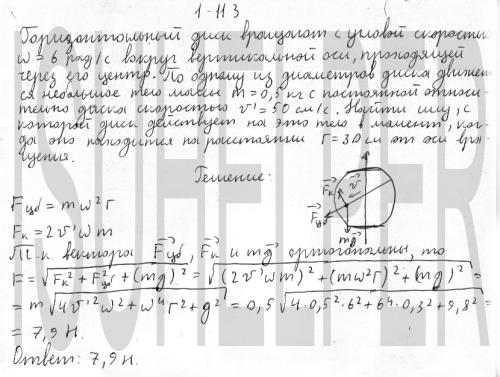 1-113
Горизонтальный диск вращают с угловой скоростью
ω = 6 рад/с вокруг вертикальной оси, проходящей
через его центр. По одному из диаметров диска движет-
ся небольшое тело массы m = 0,5 кг с постоянной относи-
тельно диска скоростью v' = 50 см/с. Найти силу, с
которой диск действует на это тело в момент, ког-
да оно находится на расстоянии r = 30 см от оси вра-
щения.
Решение:
Fцб = mω²r
Fк = 2v'ωm
Fк v' Fцб mg
Т.к. вектора Fцб, Fк и mg ортогональны, то
F = √(Fк² + Fцб² + (mg)²) = √((2v'ωm)² + (mω²r)² + (mg)²) =
= m√(4v'²ω² + ω⁴r² + g²) = 0,5√(4·0,5²·6² + 6⁴·0,3² + 9,8²) =
= 7,9 Н.
Ответ: 7,9 Н.
ISUHELPER